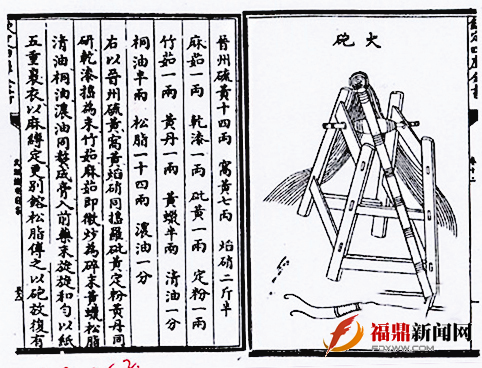 火砲
卷十二
晉州硫黃十四兩 窩黃七兩 焰硝二斤半
麻茹一兩 乾漆一兩 砒黃一兩 定粉一兩
竹茹一兩 黃丹一兩 黃蠟半兩 清油一分
桐油半兩 松脂一十四兩 濃油一分
右以晉州硫黃窩黃焰硝同搗羅砒黃定粉黃丹同
研乾漆搗為末竹茹麻茹即微炒為碎末黃蠟松脂
清油桐油濃油同熬成膏入前藥末旋旋和勻以紙
五重裹衣以麻縛定更別鎔松脂傅之以砲放復有
福鼎新闻网
FDXWW.COM